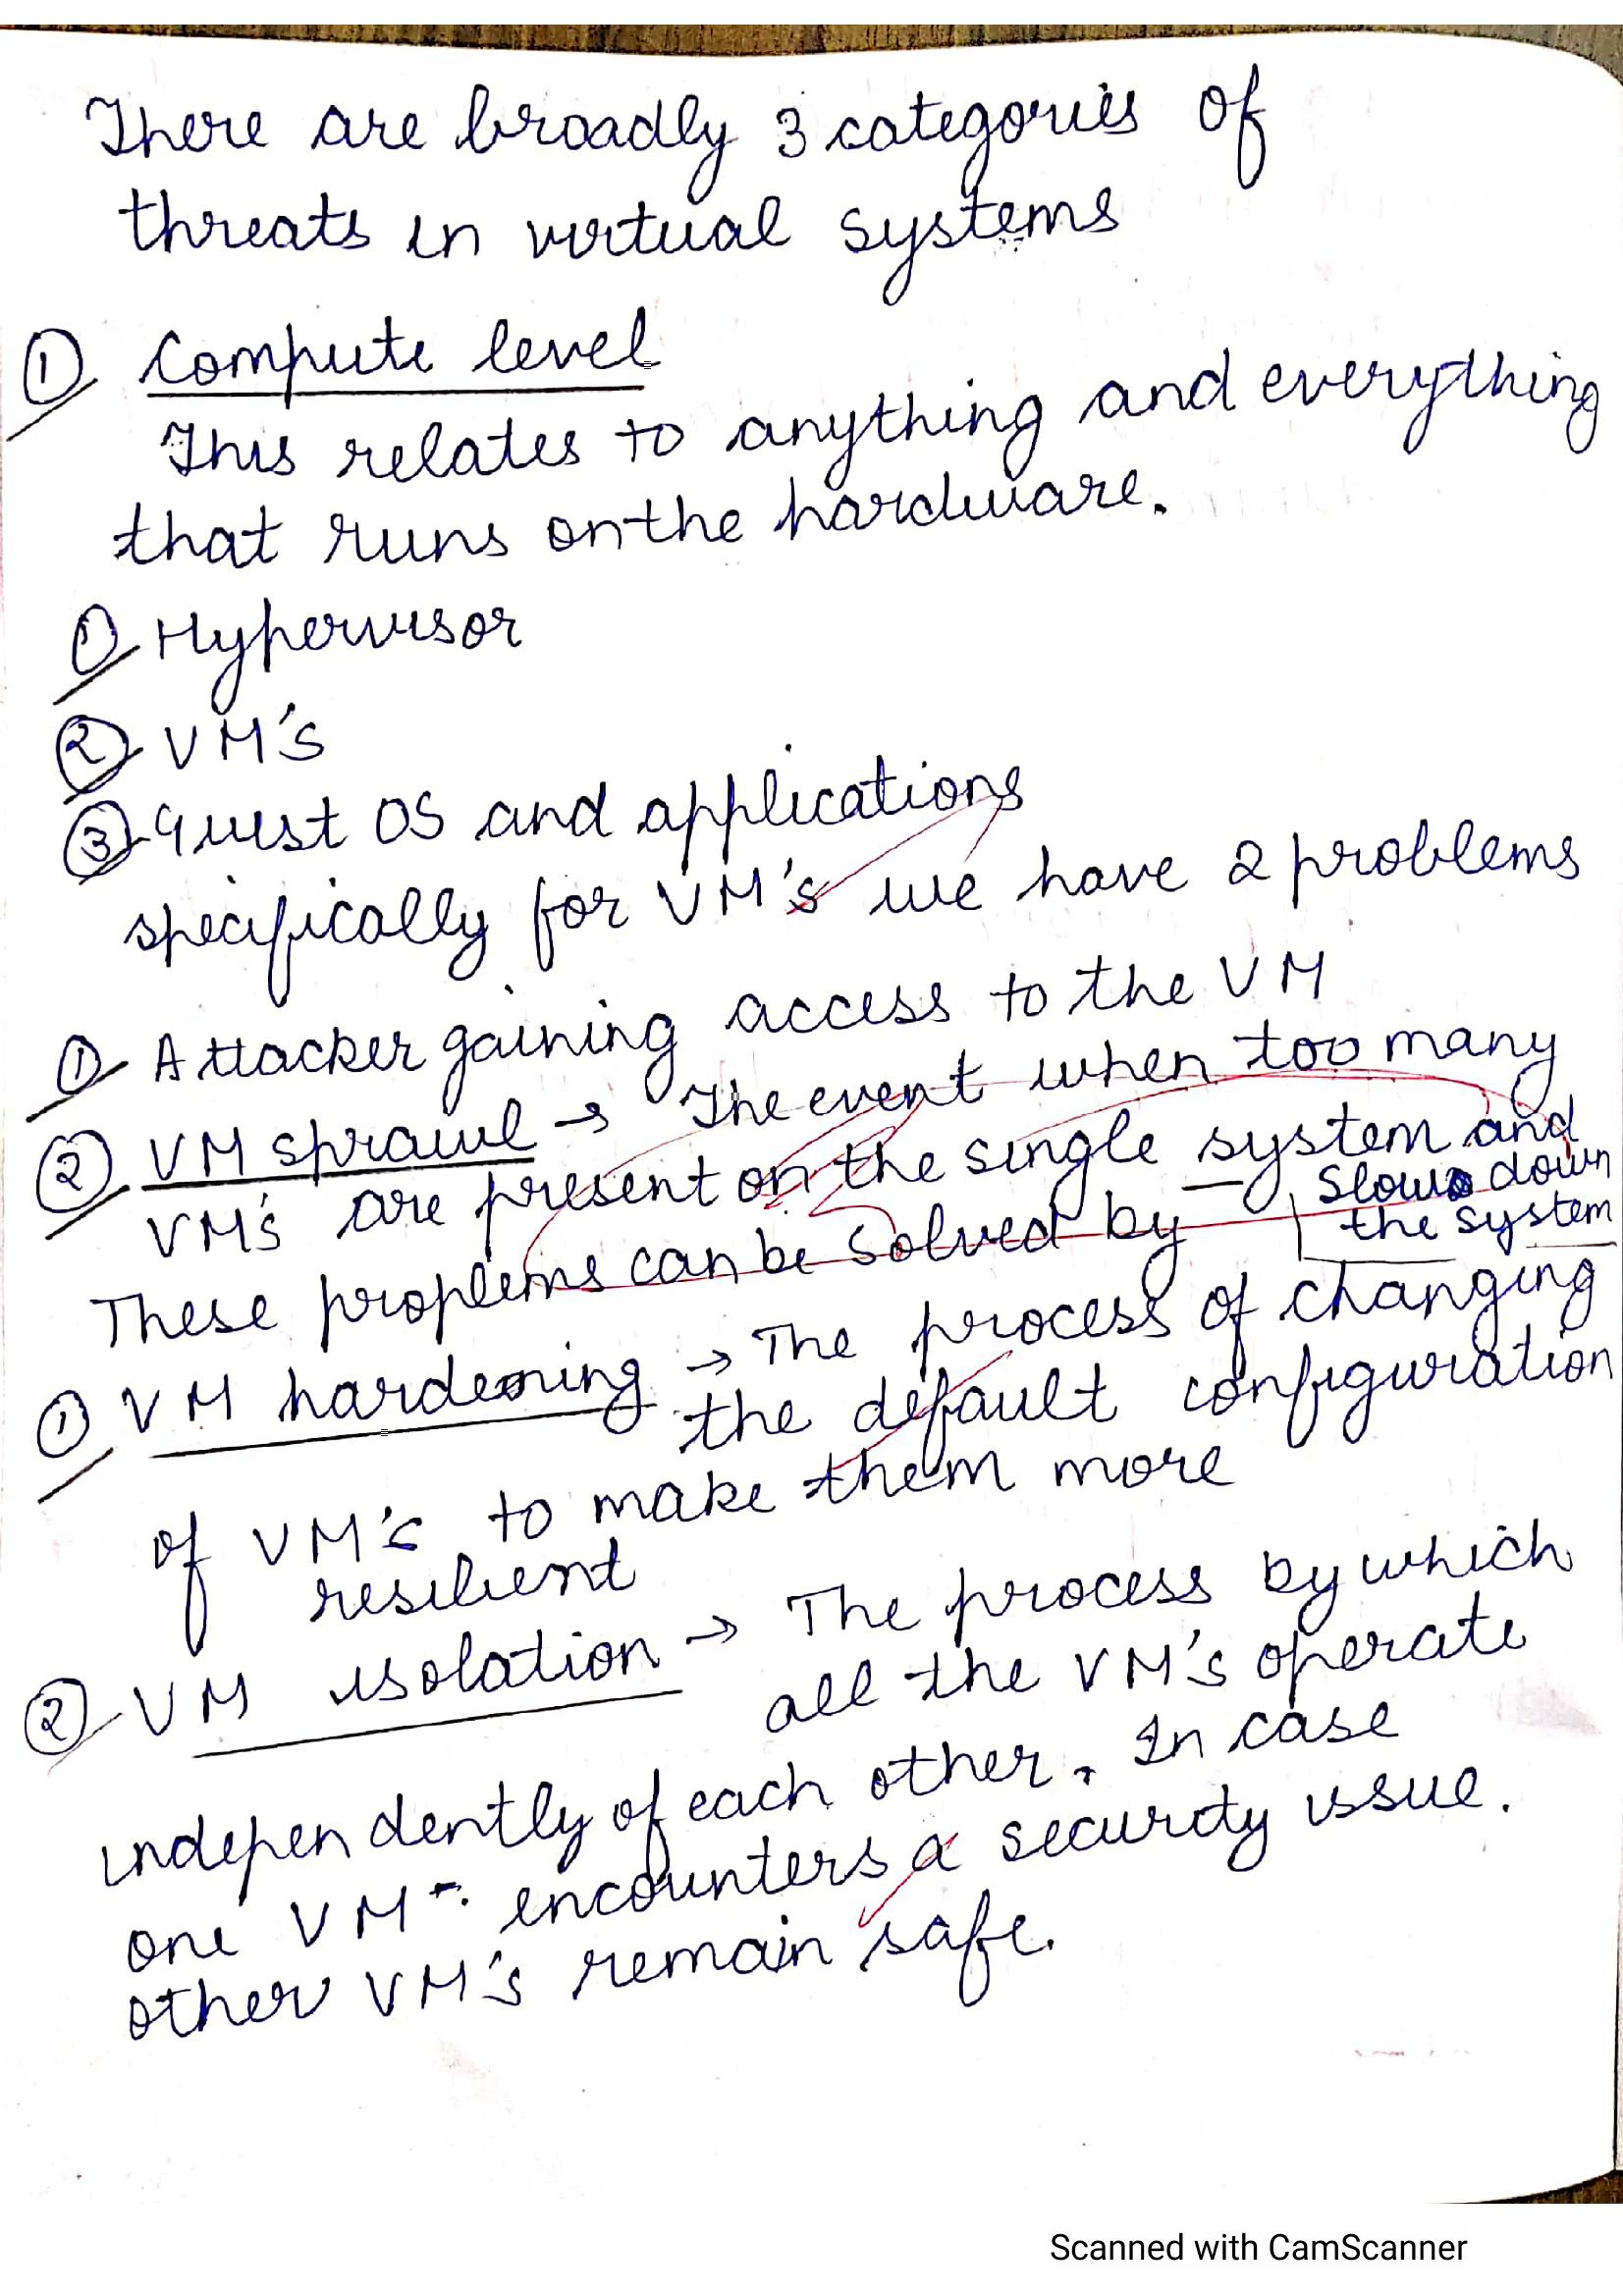 There are broadly 3 categories of
threats in virtual systems
① Compute level
This relates to anything and everything
that runs on the hardware.
① Hypervisor
② VM's
③ Guest OS and applications
specifically for VM's we have 2 problems
① Attacker gaining access to the VM
② VM sprawl → The event when too many
VM's are present on the single system and
slows down
the system
These proplems can be solved by
① VM hardening → The process of changing
the default configuration
of VM's to make them more
resilient
② VM isolation → The process by which
all the VM's operate
independently of each other. In case
one VM encounters a security issue.
other VM's remain safe.
Scanned with CamScanner